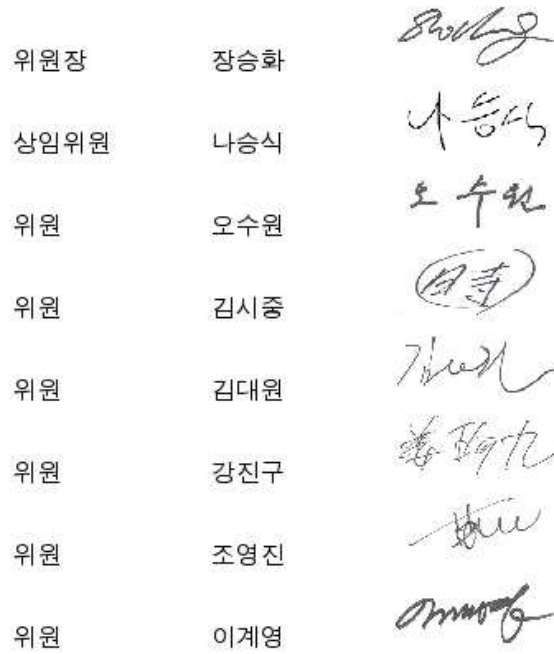 위원장 장승화
상임위원 나승식 나승식
위원 오수원 오수원
위원 김시중
위원 김대원
위원 강진구
위원 조영진
위원 이계영